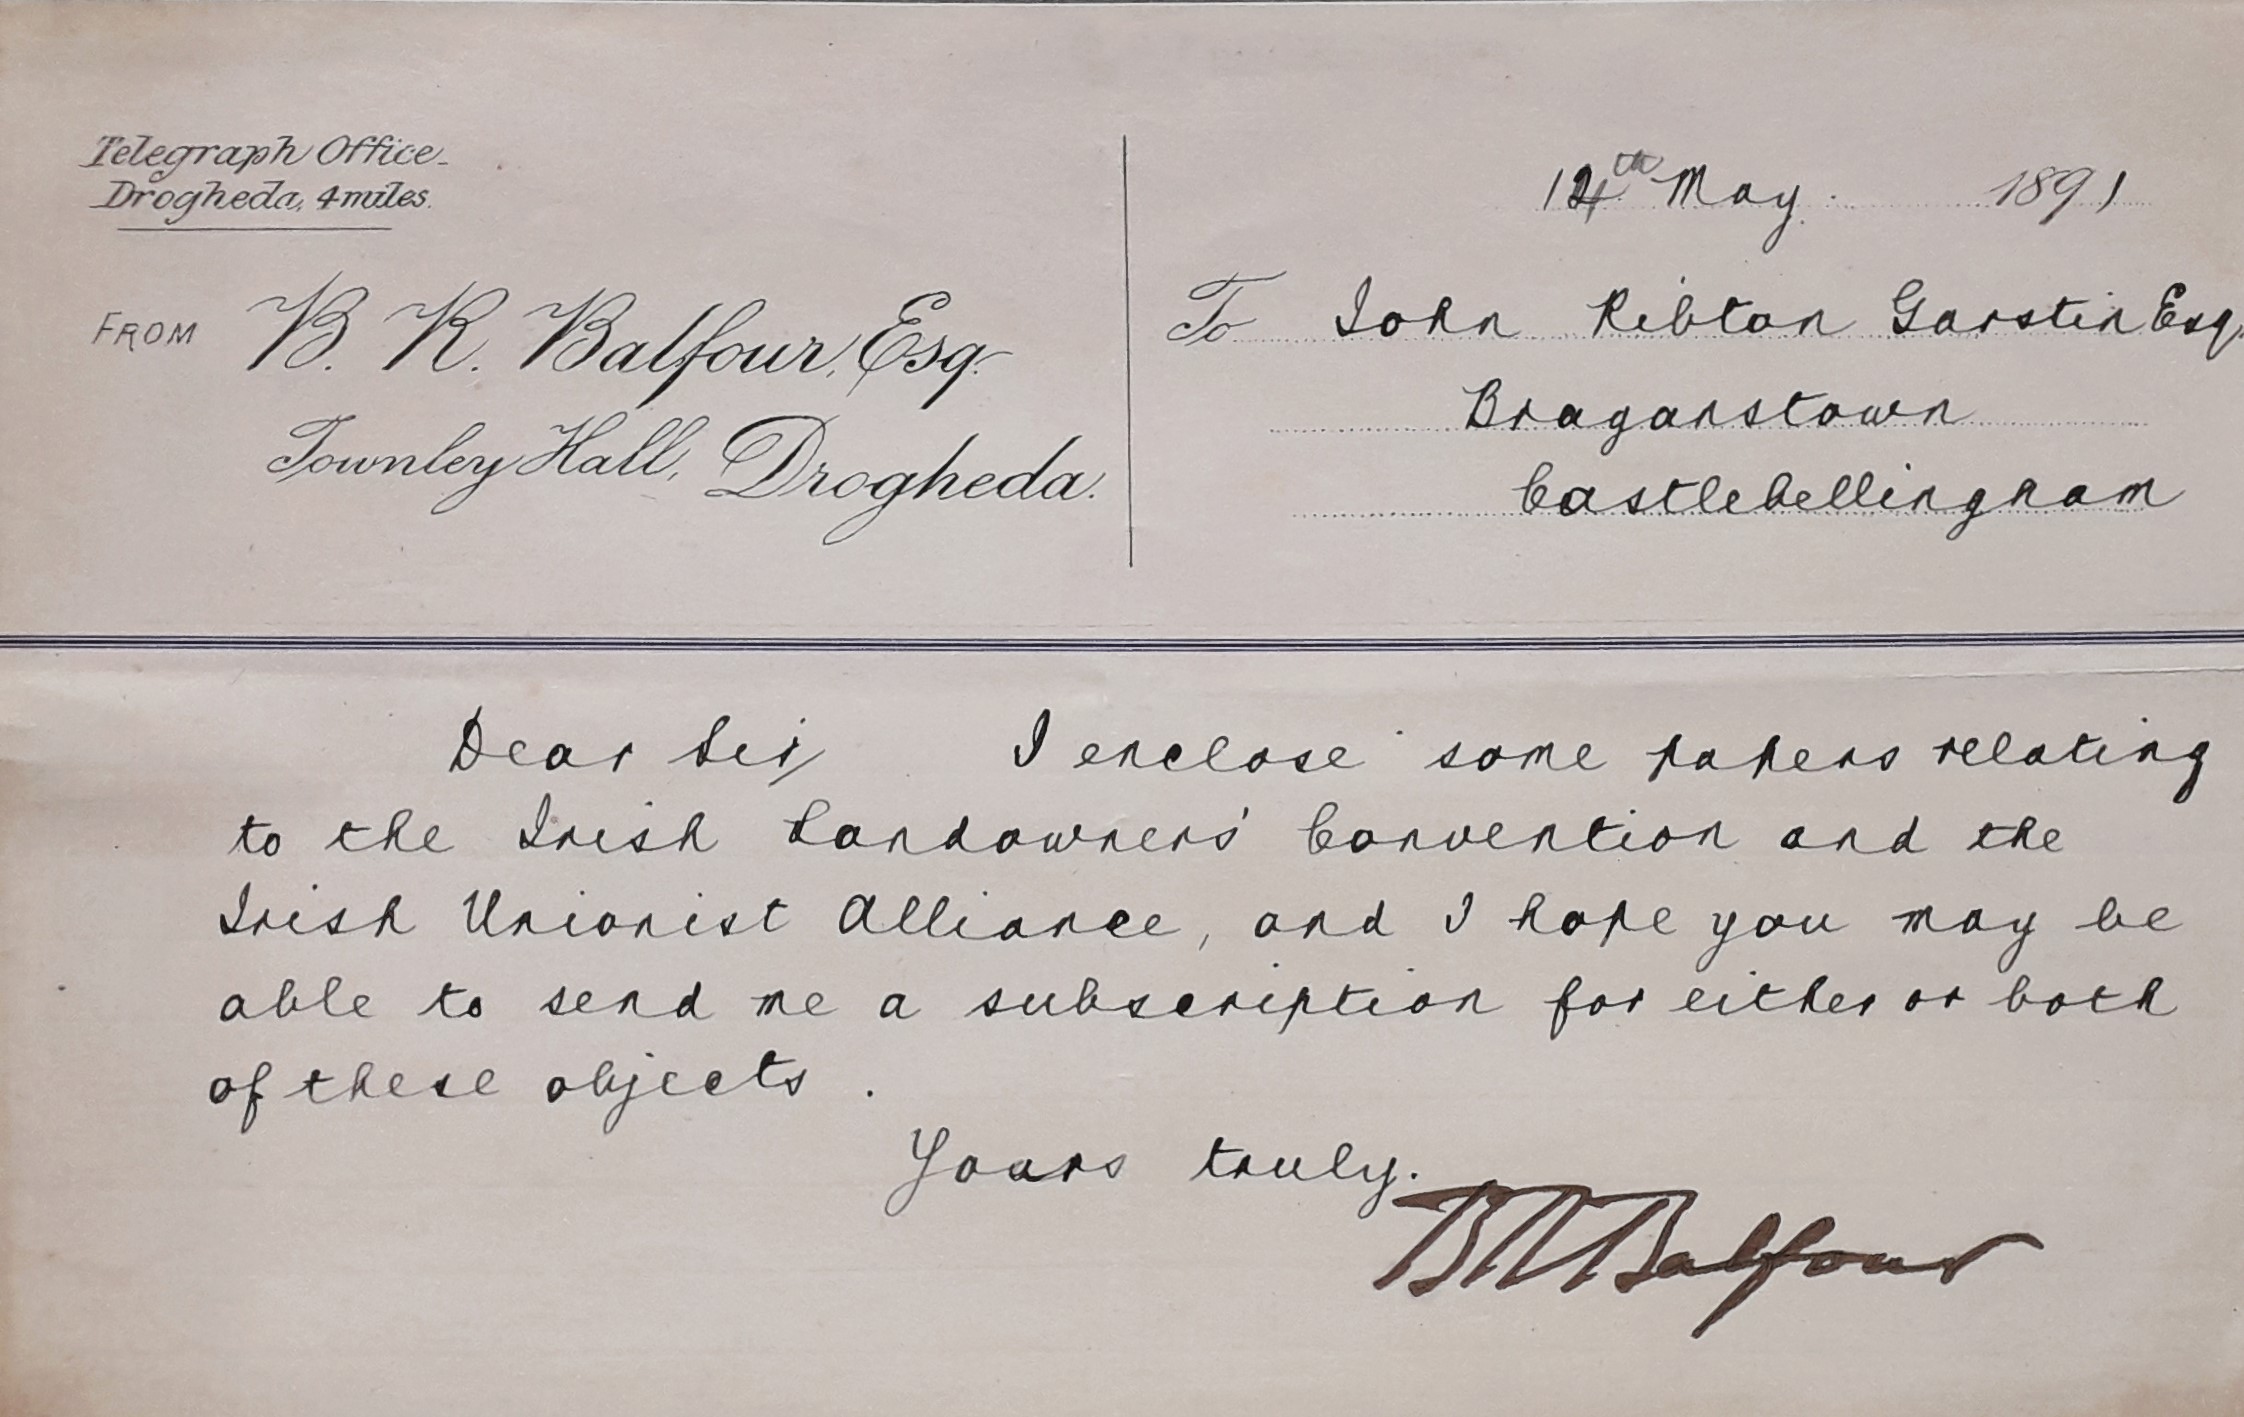 Telegraph Office
Drogheda, 4 miles.
FROM B. R. Balfour, Esq.
Townley Hall, Drogheda.
14th May. 1891
To John Ribton Garstin Esq.
Braganstown
Castlebellingham
Dear Sir, I enclose some papers relating
to the Irish Landowners' Convention and the
Irish Unionist Alliance, and I hope you may be
able to send me a subscription for either or both
of these objects.
Yours truly.
BRBalfour